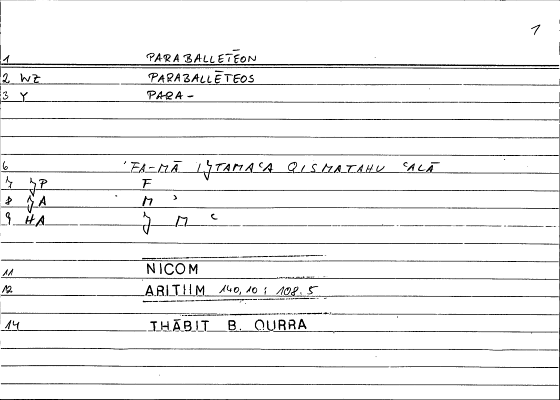 1
1 PARABALLETĒON
2 WZ PARABALLĒTEOS
3 Y PARA-
6 FA-MĀ IǦTAMAᶜA QISMATAHU ᶜALĀ
7 ǦP F
8 ǦA M ʾ
9 HA Ǧ M ᶜ
11 NICOM
12 ARITHM 140,10 : 108.5
14 THĀBIT B. QURRA